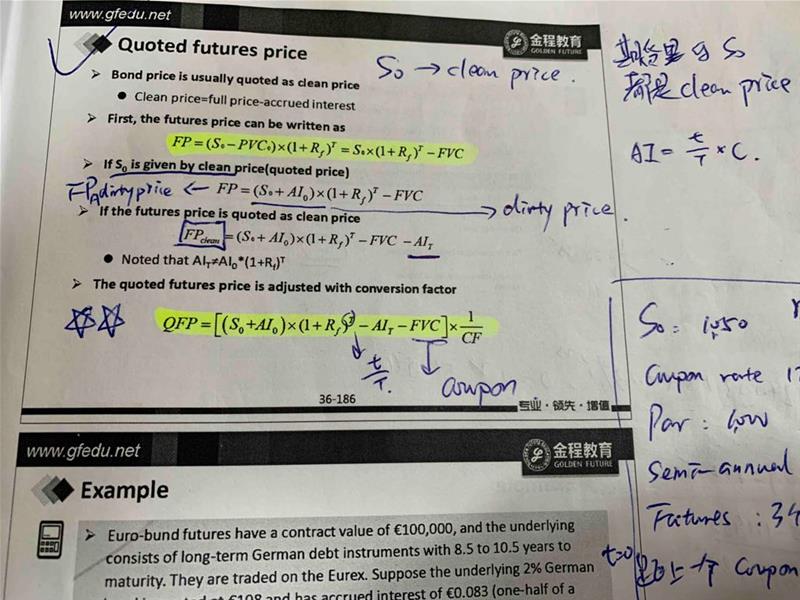 www.gfedu.net
金程教育
GOLDEN FUTURE
Quoted futures price
S₀ → clean price.
Bond price is usually quoted as clean price
Clean price=full price-accrued interest
First, the futures price can be written as
FP=(S₀-PVC₀)×(1+R_f)^T=S₀×(1+R_f)^T-FVC
If S₀ is given by clean price(quoted price)
dirty price ← FP=(S₀+AI₀)×(1+R_f)^T-FVC
dirty price.
If the futures price is quoted as clean price
FP_clean=(S₀+AI₀)×(1+R_f)^T-FVC-AI_T
Noted that AI_T≠AI₀*(1+R_f)^T
The quoted futures price is adjusted with conversion factor
QFP=[(S₀+AI₀)×(1+R_f)^T-AI_T-FVC]×1/CF
t/T.
coupon
36-186
专业·领先·增值
期货里的 S₀
都是 clean price
AI = t/T × C.
S₀ = 1,050
Coupon rate
Par : 1,000
Semi-annual
Futures : 34
t=0
是上一个 coupon
www.gfedu.net
金程教育
GOLDEN FUTURE
Example
Euro-bund futures have a contract value of €100,000, and the underlying
consists of long-term German debt instruments with 8.5 to 10.5 years to
maturity. They are traded on the Eurex. Suppose the underlying 2% German
€108 and has accrued interest of €0.083 (one-half of a